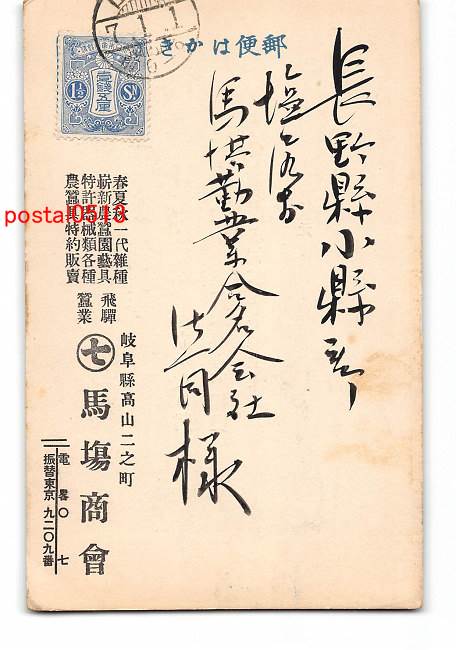 郵便はかき
7.1.1
壹錢五厘
1½ Sn
長野縣小縣郡
塩尻村
馬場勸業合名会社
御一同様
春夏秋一代雜種
嶄新農蠶園藝具
特許器械類各種
農蠶具特約販賣
飛驒
蠶業
岐阜縣高山二之町
七 馬塲商會
電畧〇七
振替東京九二〇九番
postal0513